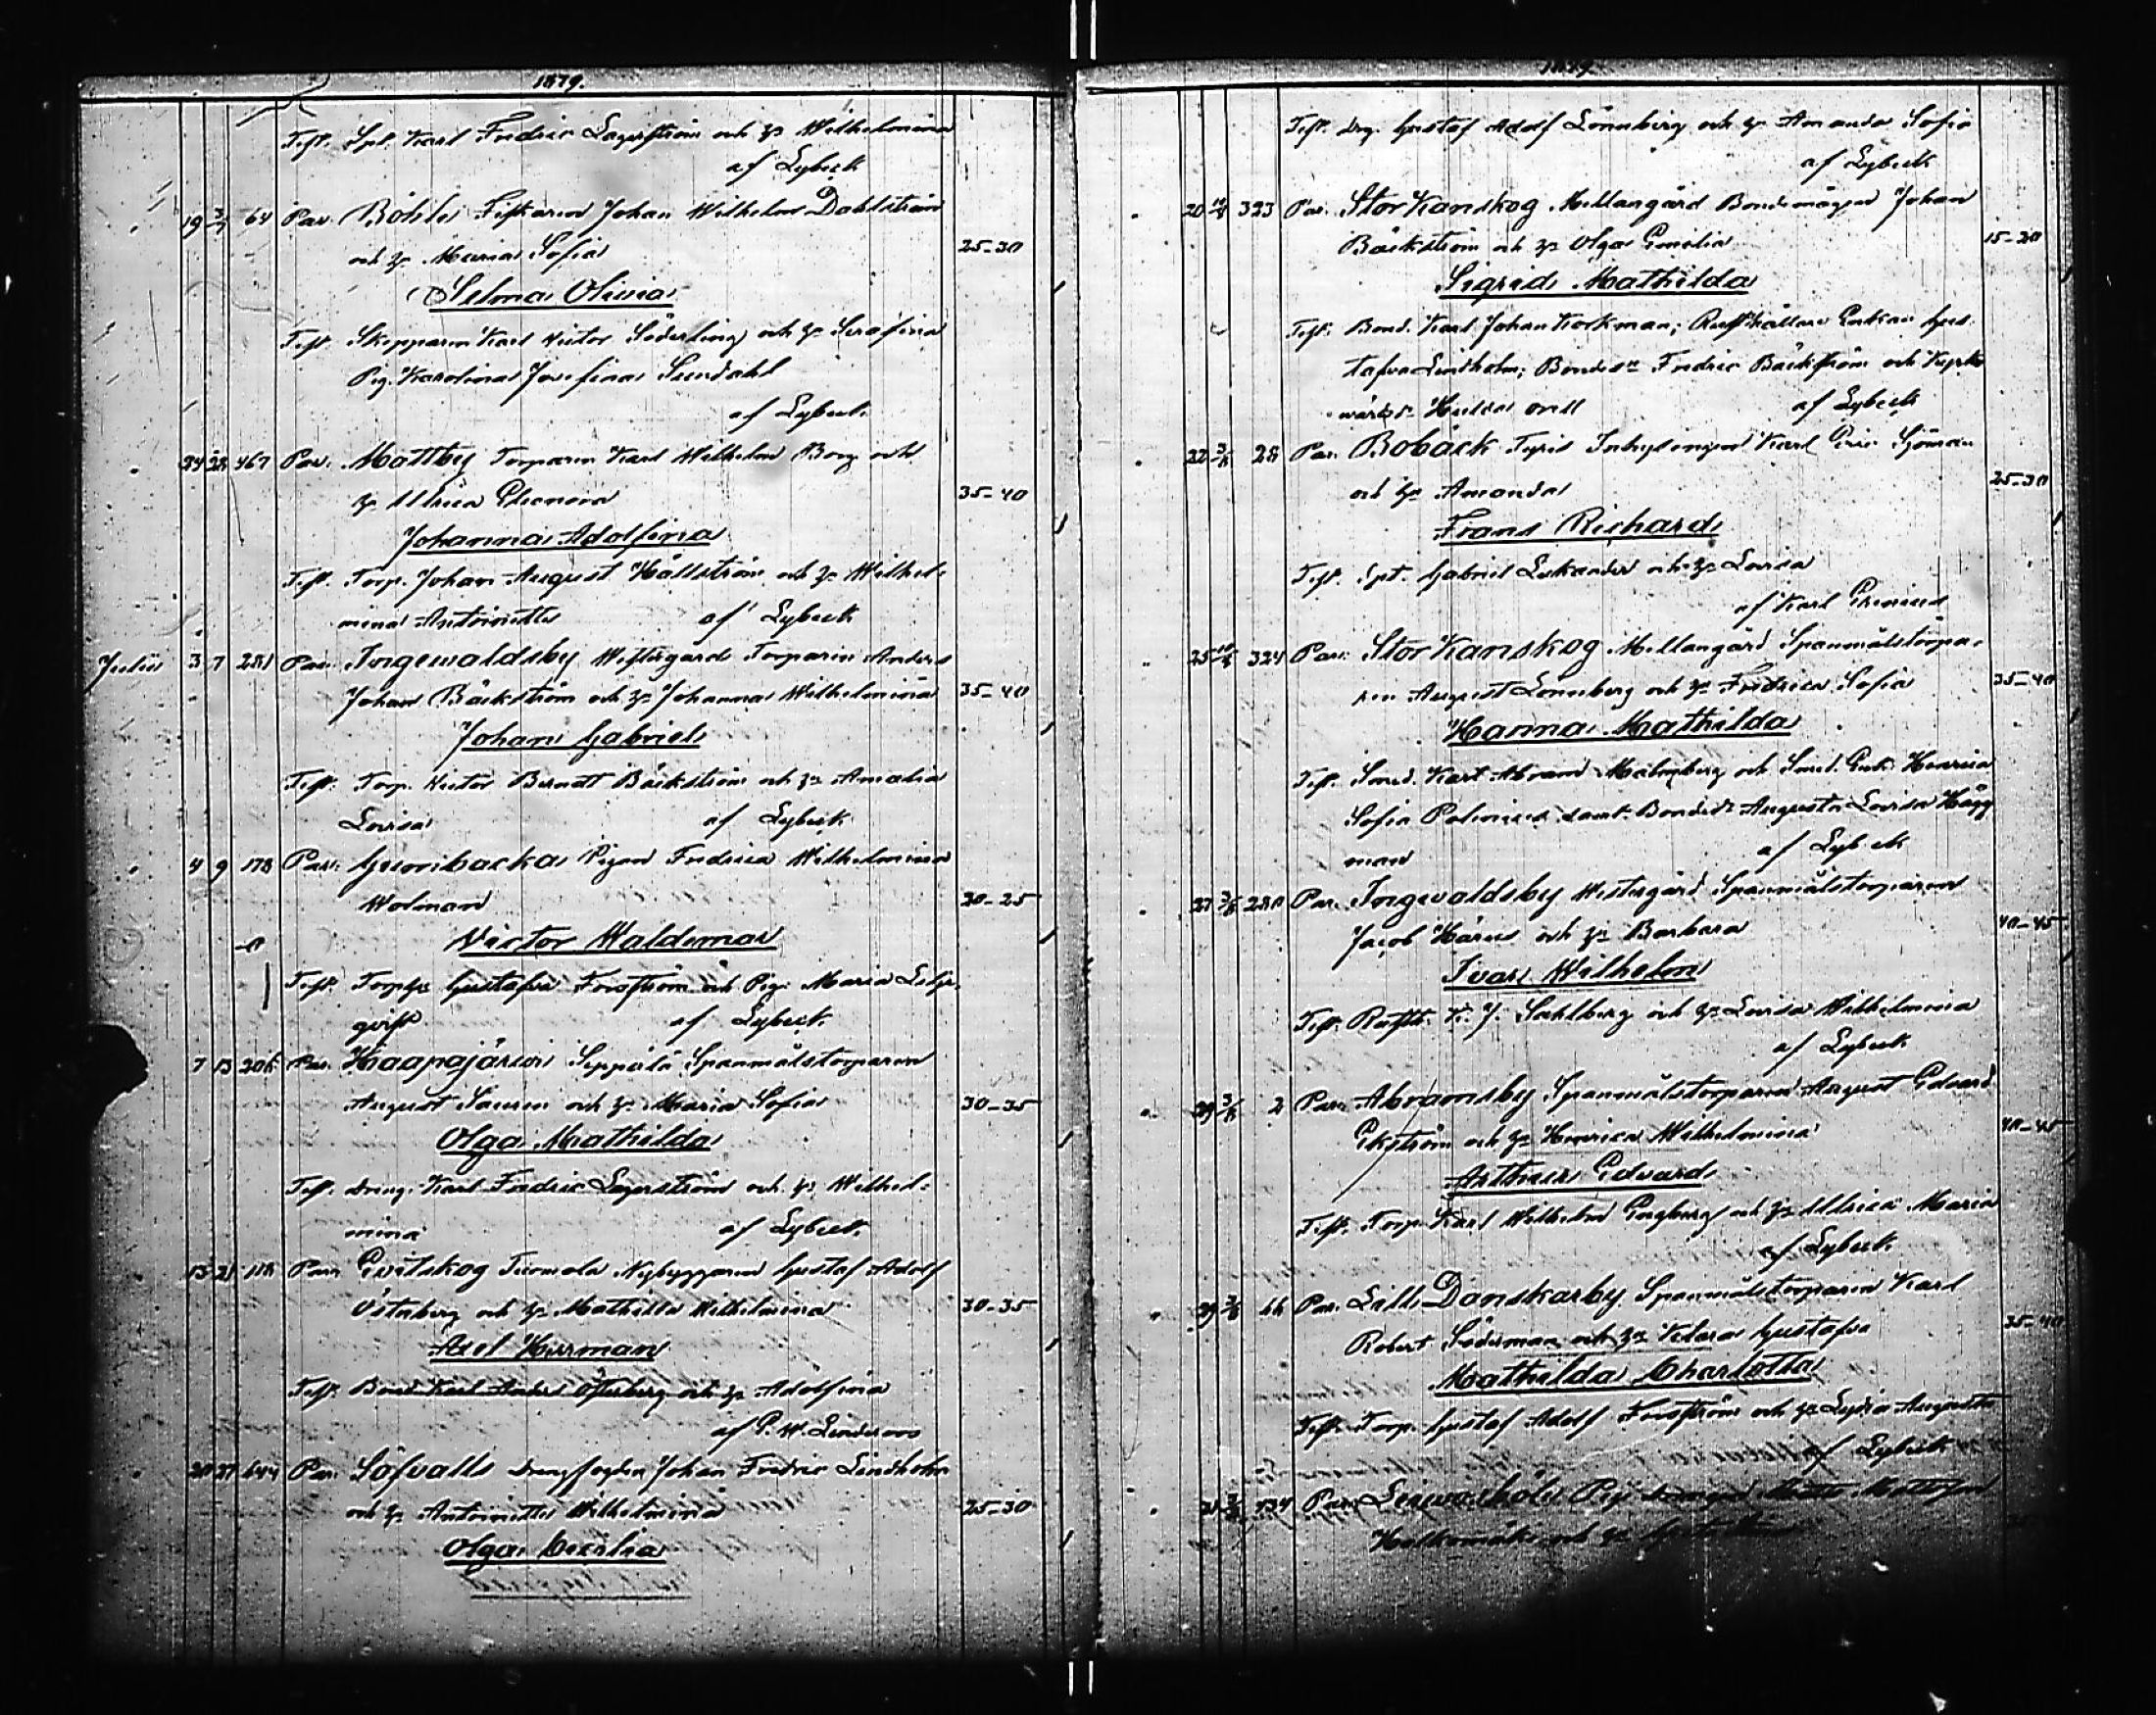 1879.
Test. Spl. Karl Fredric Lagerström och h. Wilhelmina
af Lybeck
19 3/7 64 Par. Böhle Fiskaren Johan Wilhelm Dahlström
och h. Maria Sofia 25-30
Selma Olivia
Test. Skepparen Karl Victor Söderling och h. Serafina
Pig. Karolina Josefina Sundahl
af Lybeck
24 28 467 Par. Mattby Torparen Karl Wilhelm Borg och
h. Ulrica Eleonora 35-40
Johanna Adolfina
Test. Torp. Johan August Hållström och h. Wilhel-
mina Antoinette af Lybeck
Julii 3 7 281 Par. Ingewaldsby Westergård Torparen Anders
Johan Bäckström och h. Johanna Wilhelmina 35-40
Johan Gabriel
Test. Torp. Victor Berndt Bäckström och h. Amalia
Lovisa af Lybeck
4 9 178 Par. Gunnibacka Pigan Fredrica Wilhelmina
Wolman 20-25
Victor Waldemar
Test. Torph. Gustafva Forsström och Pig. Maria Lilje-
qvist af Lybeck
7 13 206 Par. Haapajärvi Seppälä Spanmålstorparen
August Saurén och h. Maria Sofia 30-35
Olga Mathilda
Test. Dreng. Karl Fredric Lagerström och h. Wilhel-
mina af Lybeck
13 21 118 Par. Evitskog Tuomola Nybyggaren Gustaf Adolf
Österberg och h. Mathilda Wilhelmina 30-35
Axel Herrman
Test. Bond. Karl Anders Österberg och h. Adolfina
af P. W. Lindroos
20 27 644 Par. Söfvalls Drengfogden Johan Fredric Lindholm
och h. Antoinette Wilhelmina 25-30
Olga Cecilia
1879.
Test. Drg. Gustaf Adolf Lönnberg och h. Amanda Sofia
af Lybeck
20 10/8 323 Par. Stor Kanskog Mellangård Bondemågen Johan
Bäckström och h. Olga Emelia 15-20
Sigrid Mathilda
Test. Bond. Karl Johan Korkman; Rusthållare Enkan Gus-
tafva Lindholm; Bondes. Fredric Bäckström och Kyrko-
wärds. Hulda
af Lybeck
22 3/8 28 Par. Bobäck Inhysingen Karl Eric Sjöman
och h. Amanda 25-30
Frans Richard
Test. Spt. Gabriel Lukander och h. Lovisa
af Karl
25 10/8 324 Par. Stor Kanskog Mellangård Spanmålstorpa-
ren August Lönnberg och h. Fredrica Sofia 35-40
Hanna Mathilda
Test. Smed. Karl Abram Malmberg och Smed. Enk. Henrica
Sofia samt Bonded. Augusta Lovisa Hägg-
man af Lybeck
27 3/8 280 Par. Ingevaldsby Westergård Spanmålstorparen
Jacob och h. Barbara 40-45
Ivar Wilhelm
Test. Rusth. K. J. Sahlberg och h. Lovisa Wilhelmina
af Lybeck
29 3/8 2 Par. Abramsby Spanmålstorparen August Edvard
Ekström och h. Henrica Wilhelmina 40-45
Arthur Edvard
Test. Torp. Karl Wilhelm Engberg och h. Ulrica Maria
af Lybeck
29 3/8 66 Par. Lill Danskarby Spanmålstorparen Karl
Robert Söderman och h. Klara Gustafva 35-40
Mathilda Charlotta
Test. Torp. Gustaf Adolf Forsström och h. Lydia Augusta
af Lybeck
31 3/8 134 Par.
och h.